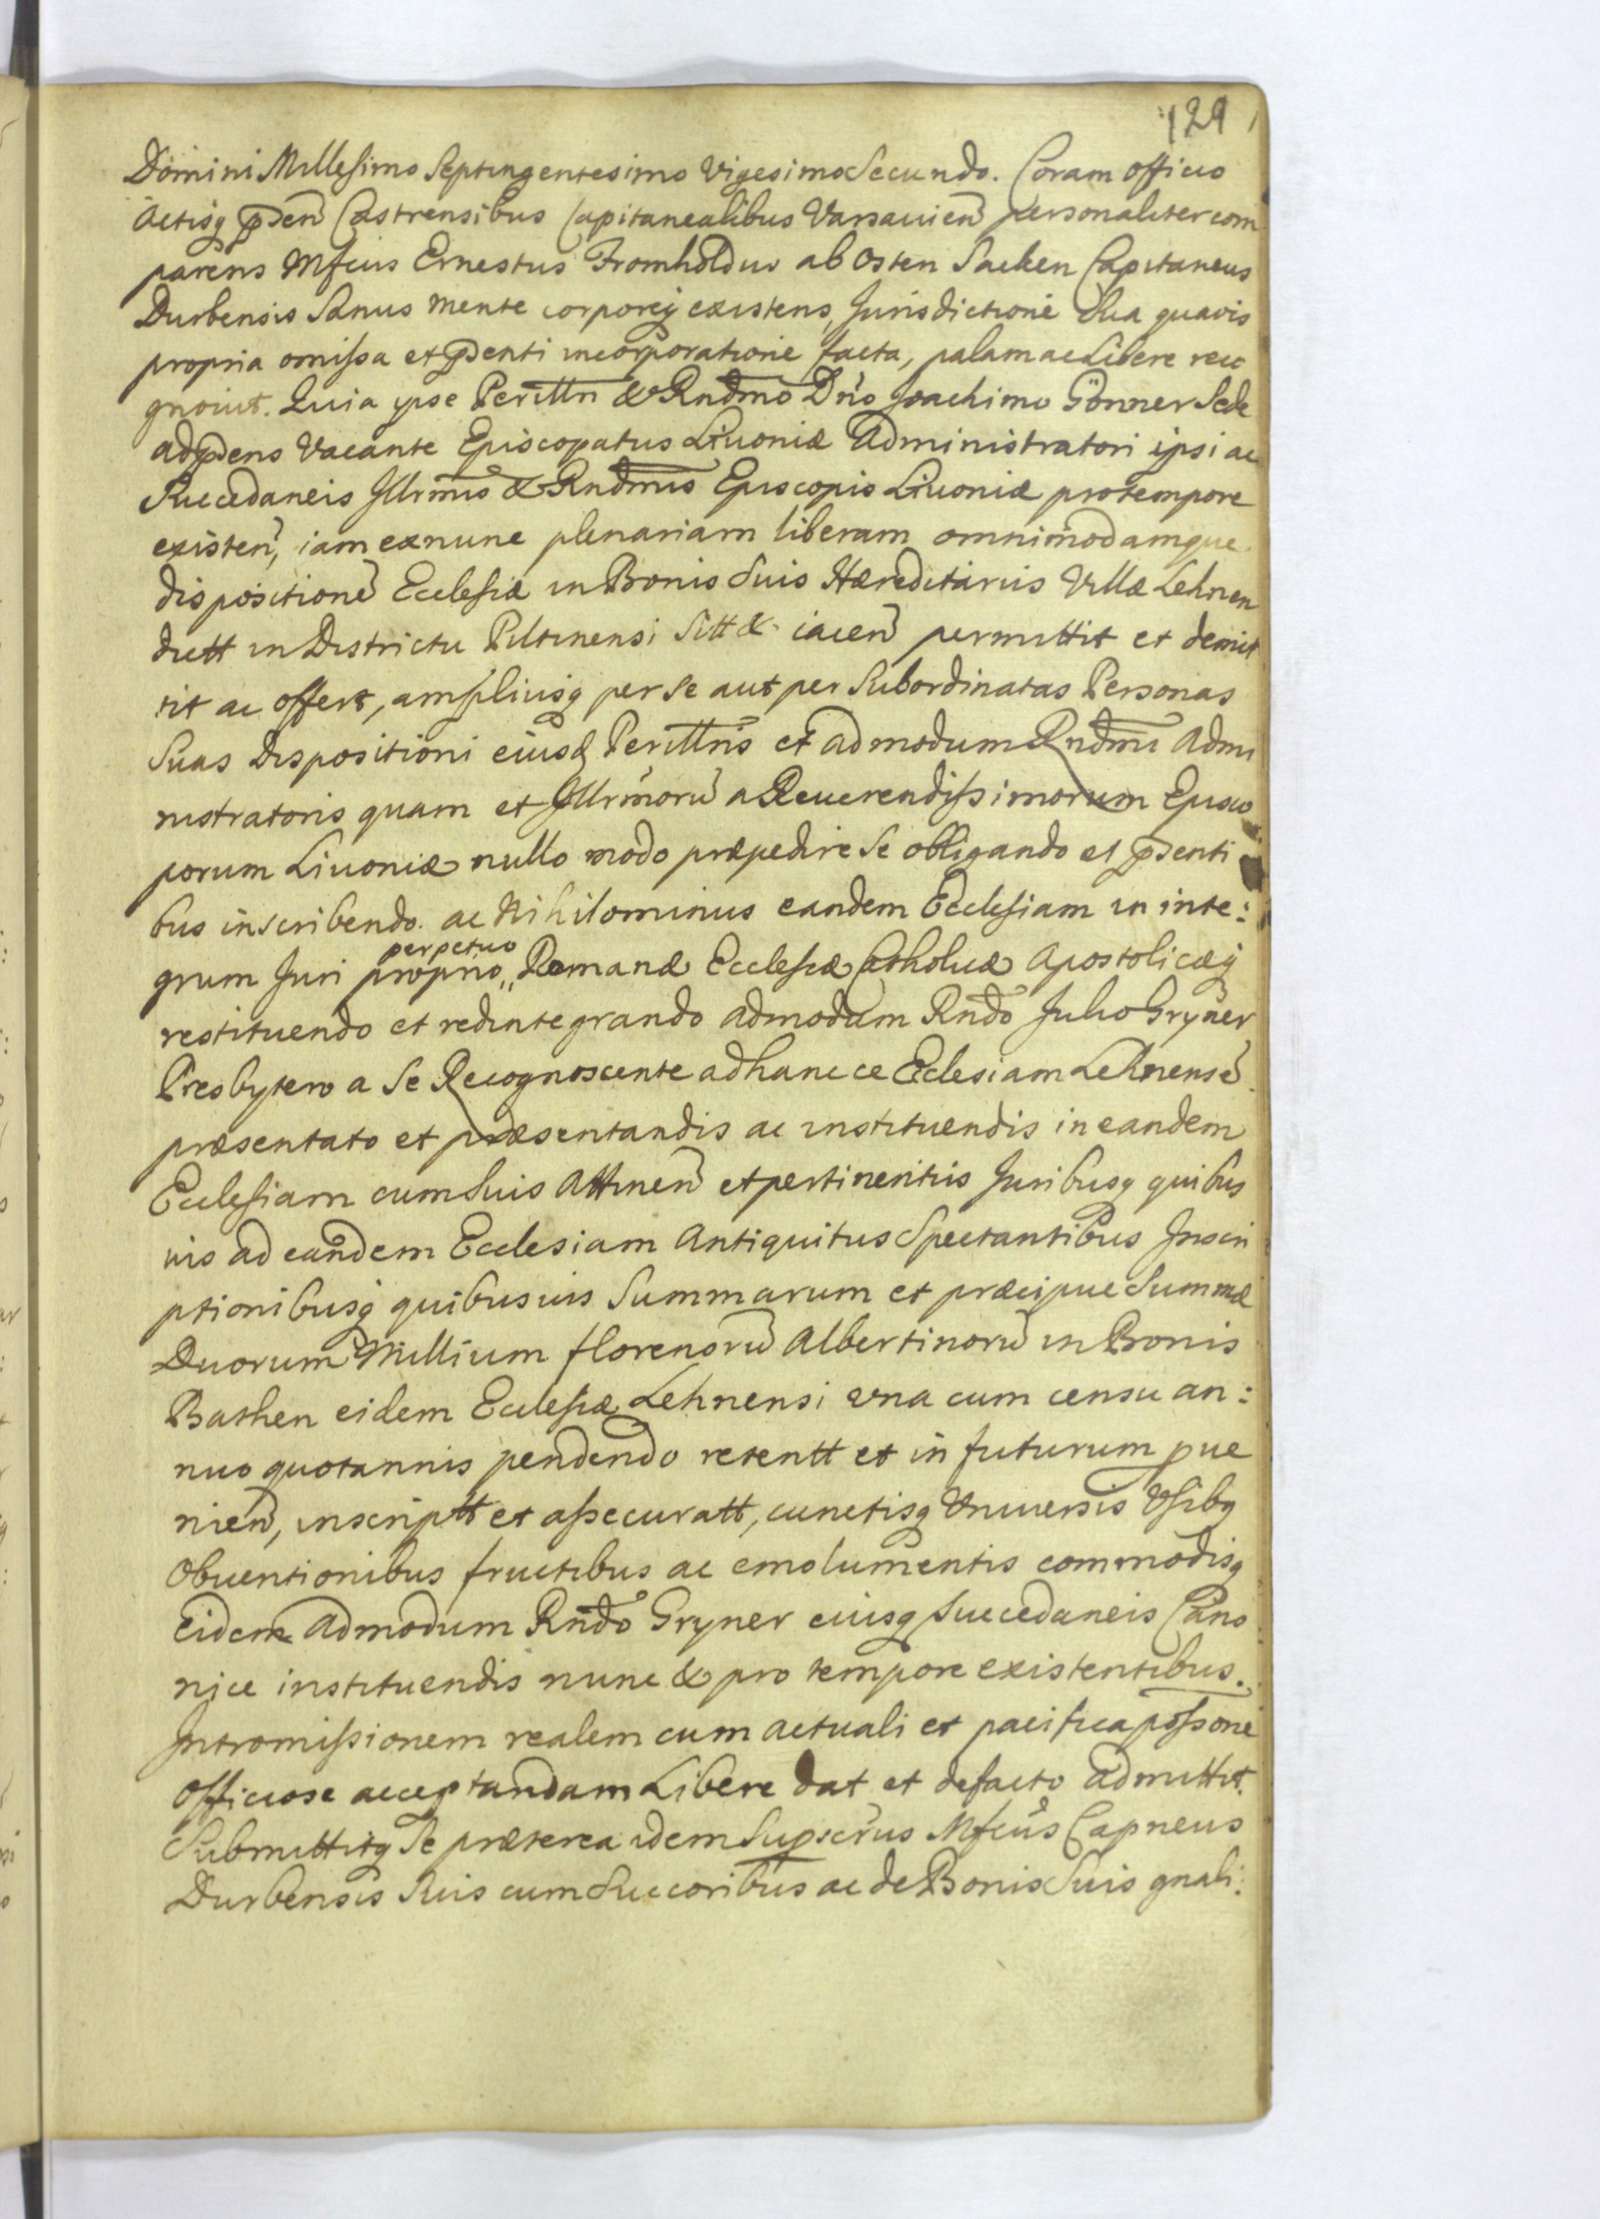 129
Domini Millesimo Septingentesimo Vigesimo Secundo. Coram Officio
Actisq p̄sen̄ Castrensibus Capitanealibus Varsavien̄ personaliter com
parens Mfcus Ernestus Fromholdus ab Osten Sacken Capitaneus
Durbensis Sanus mente corporeq existens, Jurisdictione Sua quavis
propria omissa et p̄senti incorporatione facta, palam ac Libere reco
gnovit. Quia ipse Perilln & Rndmo Dn̄o Joachimo Gönner Sede
ad p̄sens Vacante Episcopatus Livoniæ Administratori ipsi ac
Succedaneis Jllrmis & Rndmis Episcopis Livoniæ pro tempore
existen̄, iam ex nunc plenariam liberam omnimodamque
dispositionē Ecclesiæ in Bonis Suis Hæreditariis Villæ Lehnen
dictt in Districtu Piltinensi Sitt & iacen̄ permittit et demit
tit ac offert, ampliusq per se aut per Subordinatas Personas
Suas Dispositioni eiusd Perillris et admodum Rndmi Admi
nistratoris quam et Jllrmorū a Reverendissimorum Episco
porum Livoniæ nullo modo præpedire Se obligando et p̄senti
bus inscribendo. ac Nihilominus eandem Ecclesiam in inte:
perpetuo
grum Juri proprio,, Romanæ Ecclesiæ Catholicæ Apostolicæq
restituendo et redintegrando admodum Rndo Julio Gryner
Presbytero a Se Recognoscente ad hanc ce Eclesiam Lehnensē
præsentato et præsentandis ac instituendis in eandem
Ecclesiam cum Suis Attinen̄ et pertinentiis Juribusq quibus
vis ad eandem Ecclesiam Antiquitus Spectantibus Inscri
ptionibusq quibusvis Summarum et præcipue Summæ
Duorum Millium florenorū Albertinorū in Bonis
Bathen eidem Ecclesiæ Lehnensi una cum censu an:
nuo quotannis pendendo retentt et in futurum pve
nien̄, inscriptt et assecuratt, cunctisq Universis Usibq
Obventionibus fructibus ac emolumentis commodisq
Eidem Admodum Rndo Gryner eiusq Succedaneis Cano
nice instituendis nunc & pro tempore existentibus.
Intromissionem realem cum actuali et pacifica possone
Officiose acceptandam Libere dat et defacto admittit.
Submittitq Se præterea idem Supscrus Mfcus Capneus
Durbensis Suis cum Succoribus ac de Bonis Suis gnali: